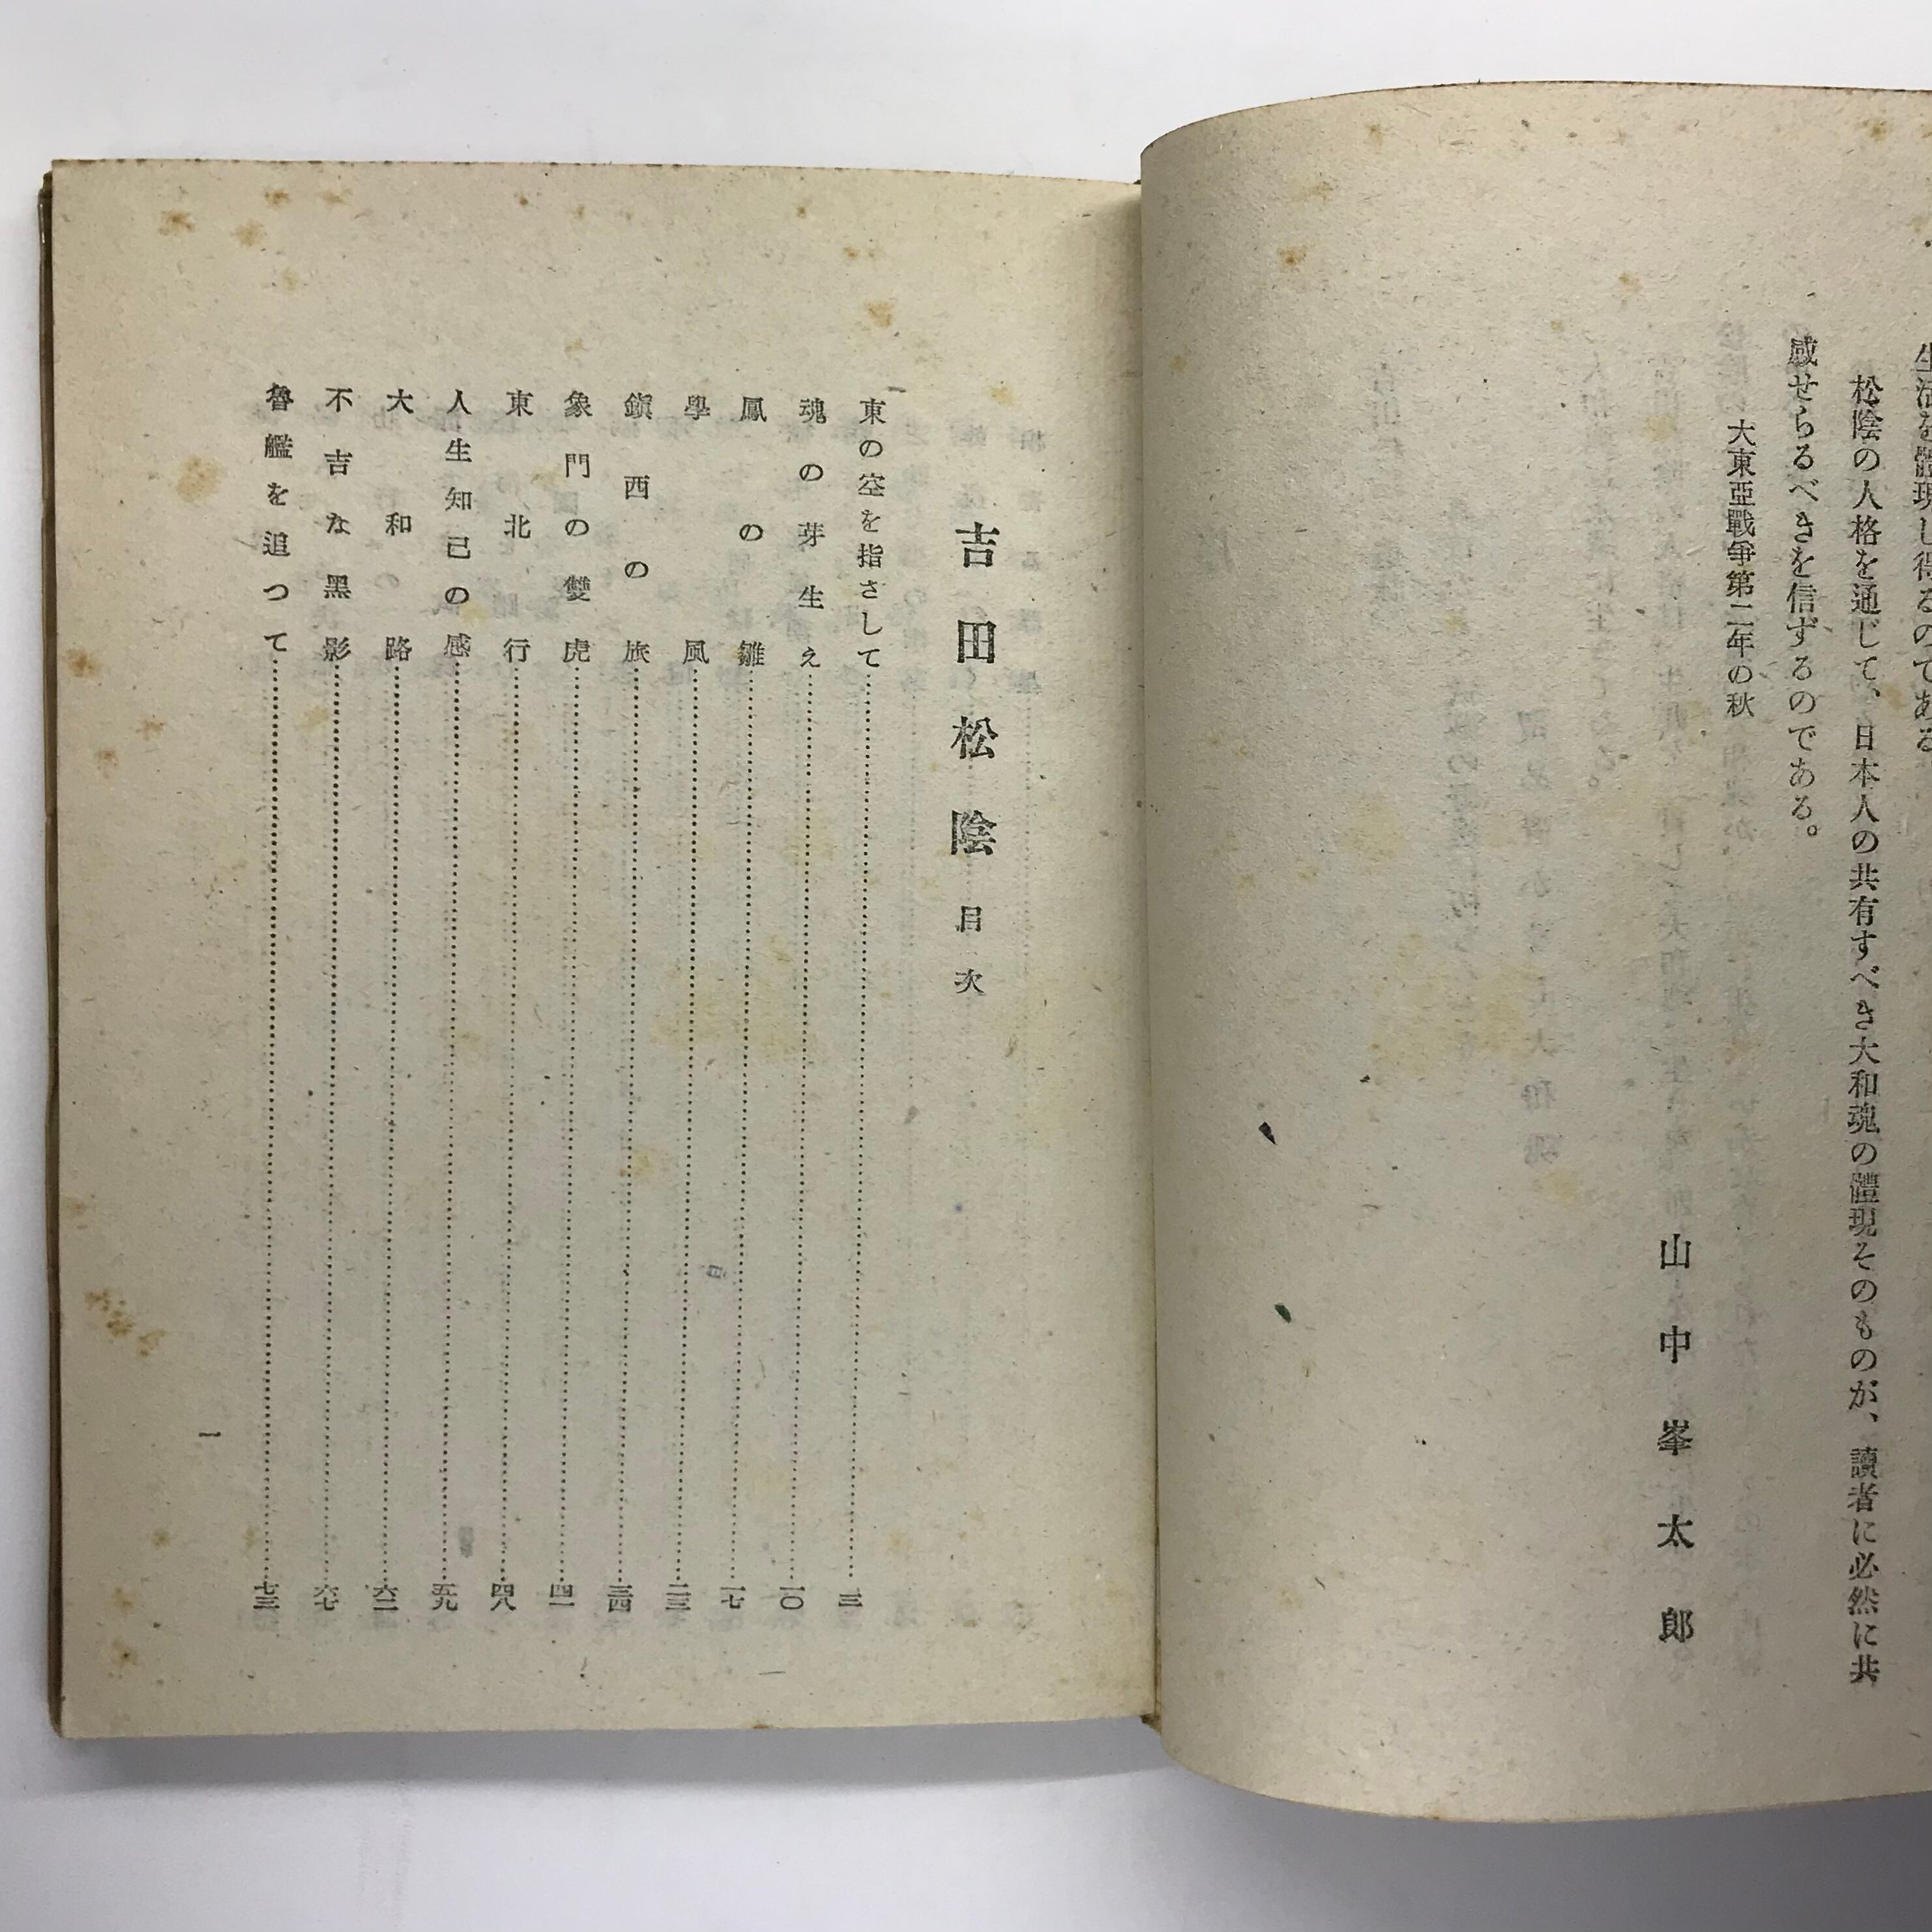 生活を體現し得るのである
松陰の人格を通じて、日本人の共有すべき大和魂の體現そのものが、讀者に必然に共
感せらるべきを信ずるのである。
大東亞戰爭第二年の秋
山中峯太郎
吉田松陰 目次
東の空を指さして……三
魂の芽生え……一〇
鳳の雛……一七
學風……二三
鎭西の旅……三四
象門の雙虎……四一
東北行……四八
人生知己の感……五九
大和路……六二
不吉な黑影……六七
魯艦を追つて……七三
一